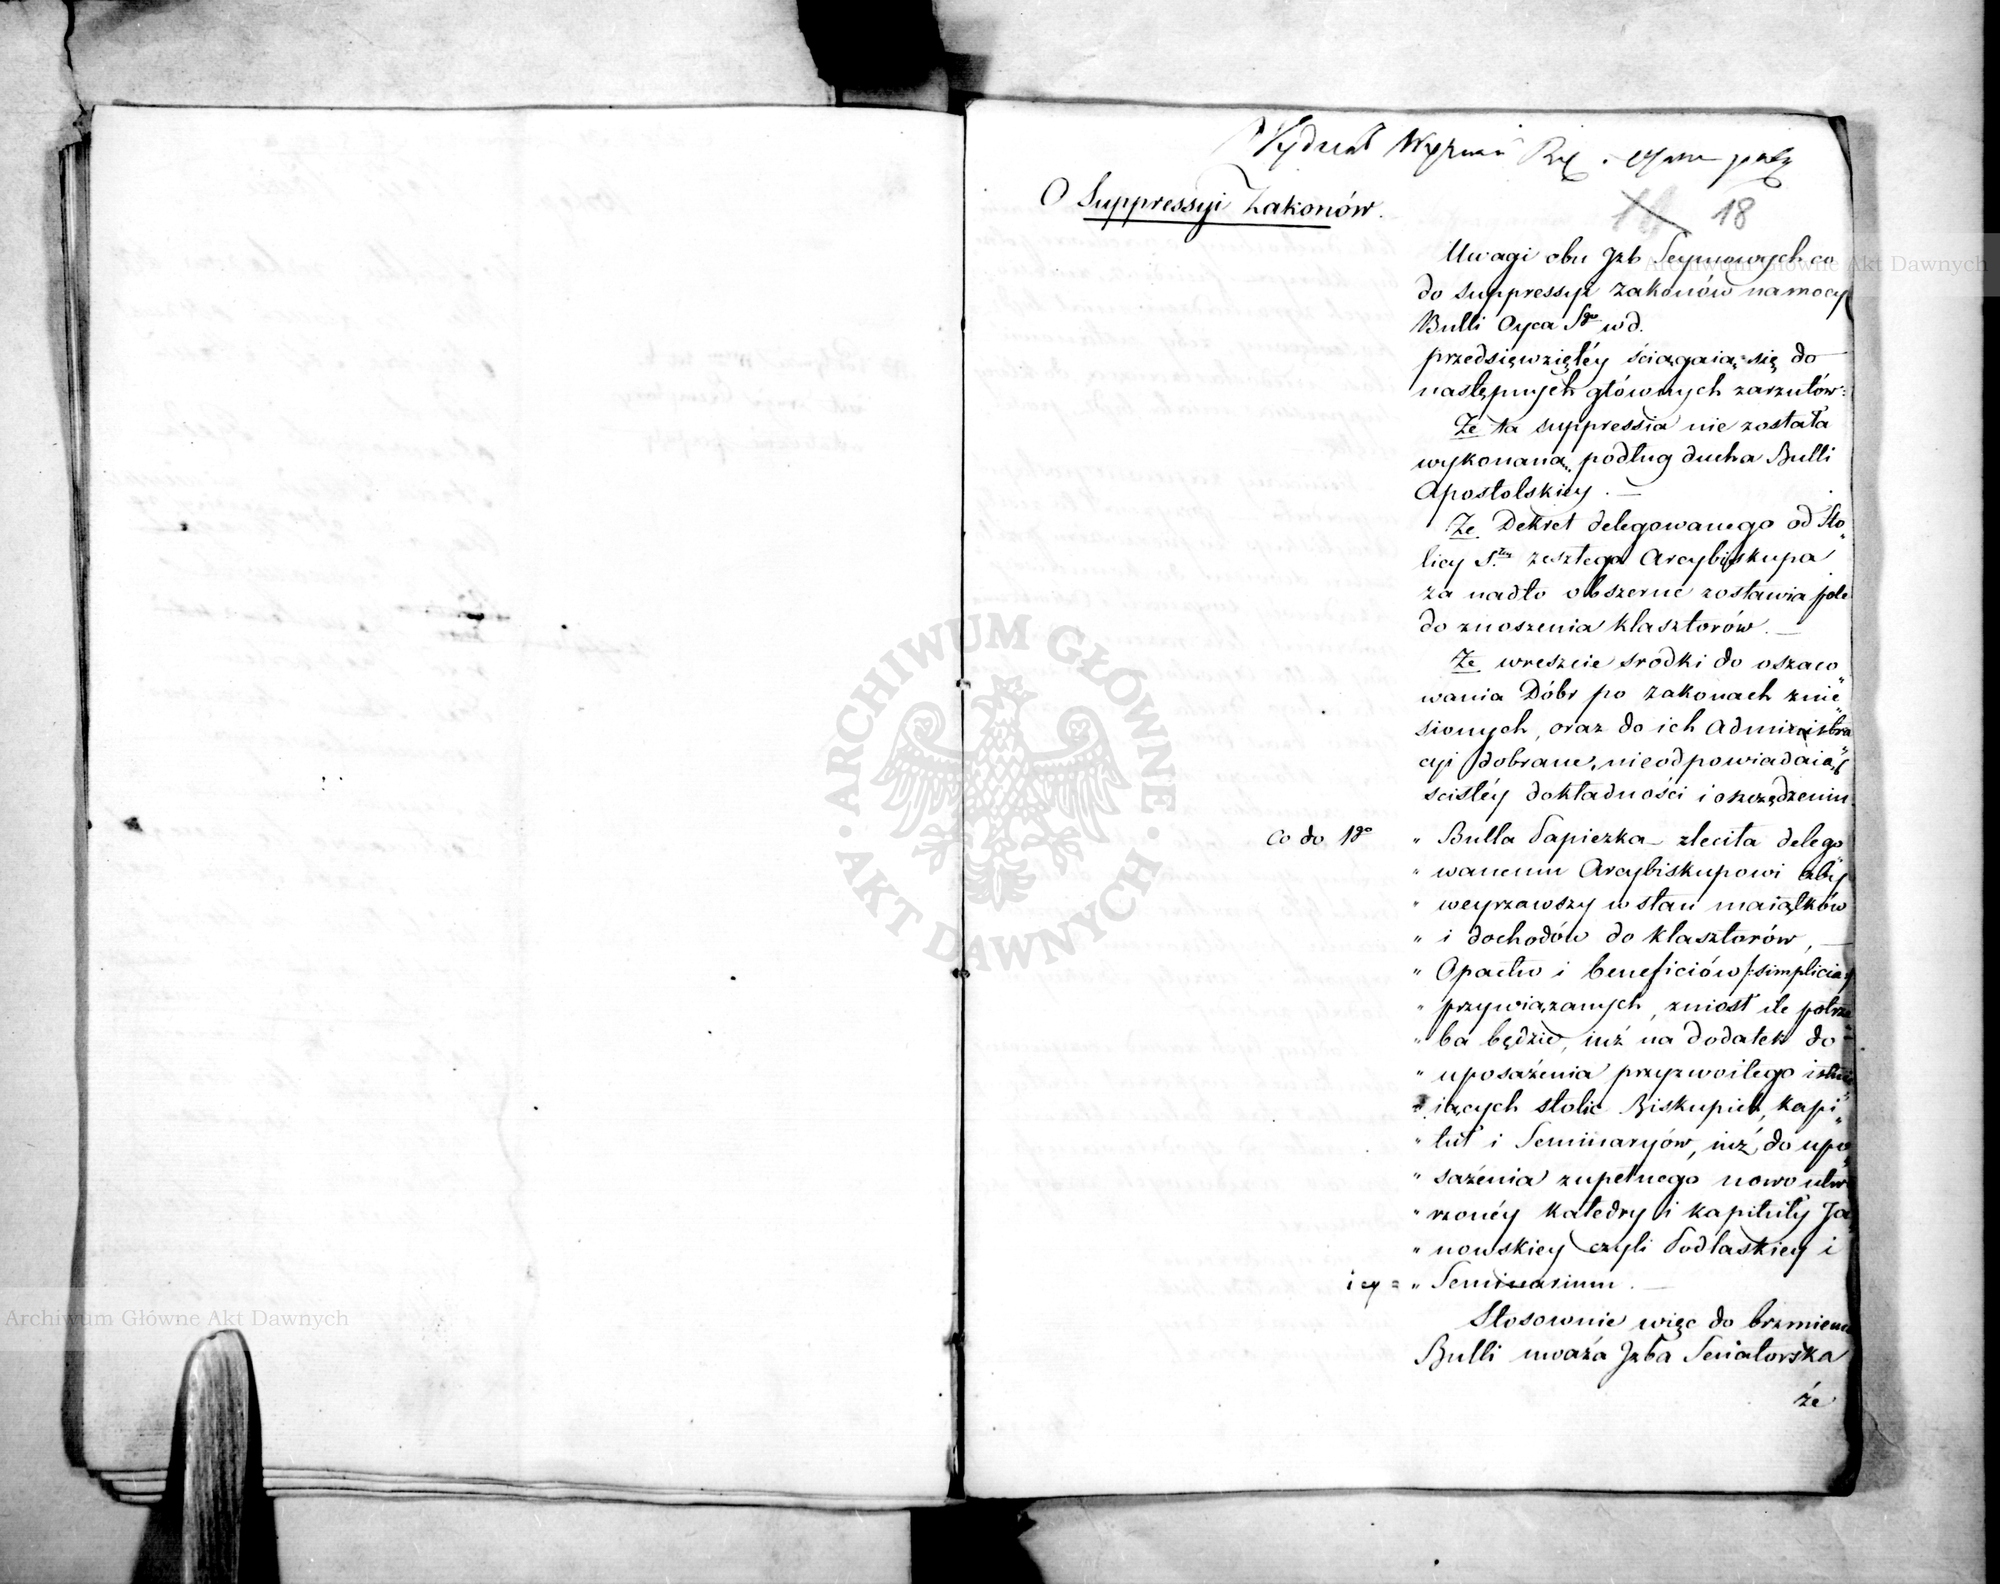 Wydział Wyznań
O Suppressyi Zakonów.
18
Uwagi obu Jzb Seymowych co
do suppressyi zakonów na mocy
Bulli Oyca Sgo w d.
przedsięwziętéy ściągaią się do
następnych głównych zarzutów:
Że ta suppressia nie została
wykonana podług ducha Bulli
Apostolskiey. —
Że Dekret delegowanego od Sto„
licy S. zeszłego Arcybiskupa
za nadto obszerne zostawia pole
do znoszenia klasztorów. —
Że wreszcie srodki do oszaco„
wania Dóbr po zakonach znie„
sionych, oraz do ich Administra„
cyi dobrane, nieodpowiadaią
scisłéy dokładności i oszczędzeniu.
Co do 1go
„ Bulla Papiezka zleciła delego„
„ wanemu Arcybiskupowi aby
„ weyrzawszy w stan maiątków
„ i dochodów do klasztorów, —
„ Opactw i beneficiów /:simplicia:/
„ przywiązanych, zniosł ile potrze„
„ ba będzie, iuż na dodatek do
„ uposażenia przyzwoitego istnie„
„ iących stolic Biskupich, kapi„
„ tuł i Seminaryów, iuż do upo„
„ sażenia zupełnego nowo utwo„
„ rzonéy katedry i kapituły Ja„
„ nowskiey czyli Podlaskiey i
iey = „ Seminarium. —
Stosownie więc do brzmienia
Bulli uważa Jzba Senatorska
że
Archiwum Główne Akt Dawnych
Archiwum Główne Akt Dawnych
ARCHIWUM GŁÓWNE
AKT DAWNYCH